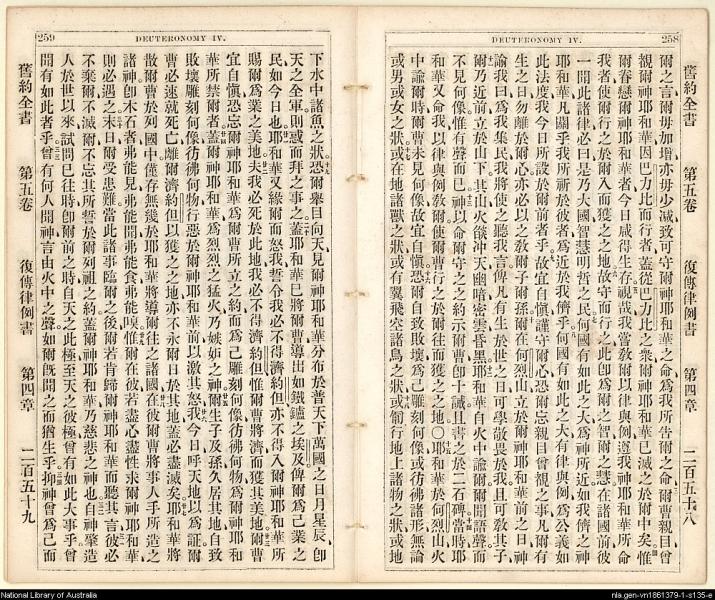 258
DEUTERONOMY IV.
舊約全書 第五卷 復傳律例書 第四章 二百五十八
爾之言爾毋加增亦毋少減致可守爾神耶和華之命為我所告爾之命爾曹親目曾
親爾神耶和華因巴力比而行者蓋從巴力比之衆爾神耶和華已滅之於爾中矣惟
爾眷戀爾神耶和華者今日咸得生存視哉我當敎爾以律與例遵我神耶和華所命
我者使爾行之於爾入而獲之之地故守而行之此卽為爾之智爾之慧在諸國前彼
一聞此諸律必曰是乃大國智慧明哲之民何國有如此之大為神所近如我儕之神
耶和華凡關乎我所祈於彼者為近於我儕乎何國有如此之大有律與例為公義如
此法度我今日所設於爾前者乎故宜自慎謹守爾心恐爾忘親目曾視之事凡爾有
生之日勿離於爾心亦必以之敎爾子爾孫爾在何烈山立於爾神耶和華前之日神
諭我曰為我集民我將使之聽我言俾凡有生於世之日可學敬畏於我且可敎其子
爾乃近前立於山下其山火燄沖天幽暗密雲昏黑耶和華自火中諭爾爾聞語聲而
不見何像惟有聲而已神以命爾守之之約示爾曹卽十誡且書之於二石碑當時耶
和華又命我以律與例敎爾使爾曹行之於爾往而獲之之地〇耶和華於何烈山火
中諭爾時爾曹未見何像故宜自慎恐爾自致敗壞為己雕刻何像或彷彿諸形無論
或男或女之狀或在地諸獸之狀或有翼飛空諸鳥之狀或匍行地上諸物之狀或地
259
DEUTERONOMY IV.
下水中諸魚之狀恐爾舉目向天見爾神耶和華分布於普天下萬國之日月星辰卽
天之全軍則惑而拜之事之蓋耶和華已將爾曹導出如鐵鑪之埃及俾爾為己業之
民如今日也耶和華又緣爾而怒我誓令我必不得濟約但亦不得入爾神耶和華所
賜爾為業之美地夫我必死於此地我必不得濟約但惟爾曹將濟而獲其美地爾曹
宜自慎恐忘爾神耶和華為爾曹所立之約而為己雕刻何像彷彿何物為爾神耶和
華所禁爾者蓋爾神耶和華為烈烈之猛火乃嫉妬之神爾生子及孫久居其地自致
敗壞雕刻何像彷彿何物行惡於爾神耶和華前以激其怒我今日呼天地以為証爾
曹必速就死亡離爾濟約但以獲之之地亦不永爾日於其地蓋必盡滅矣耶和華將
散爾曹於列國中僅存無幾於耶和華將導爾往之諸國在彼爾曹將事人手所造之
諸神卽木石者弗能見弗能聞弗能食弗能嗅惟爾在彼若盡心盡性求爾神耶和華
則必遇之末日爾受患難當此諸事臨爾之後爾若肯歸爾神耶和華而聽其言彼必
不棄爾不滅爾不忘其所誓於爾列祖之約蓋爾神耶和華乃慈悲之神也自神肇造
人於世以來試問已往時卽爾前之時自天之此極至天之彼極曾有如此大事乎曾
聞有如此者乎曾有何人聞神言由火中之聲如爾旣聞之而猶生乎抑神曾為己而
舊約全書 第五卷 復傳律例書 第四章 二百五十九
National Library of Australia
nla.gen-vn1861379-1-s135-e